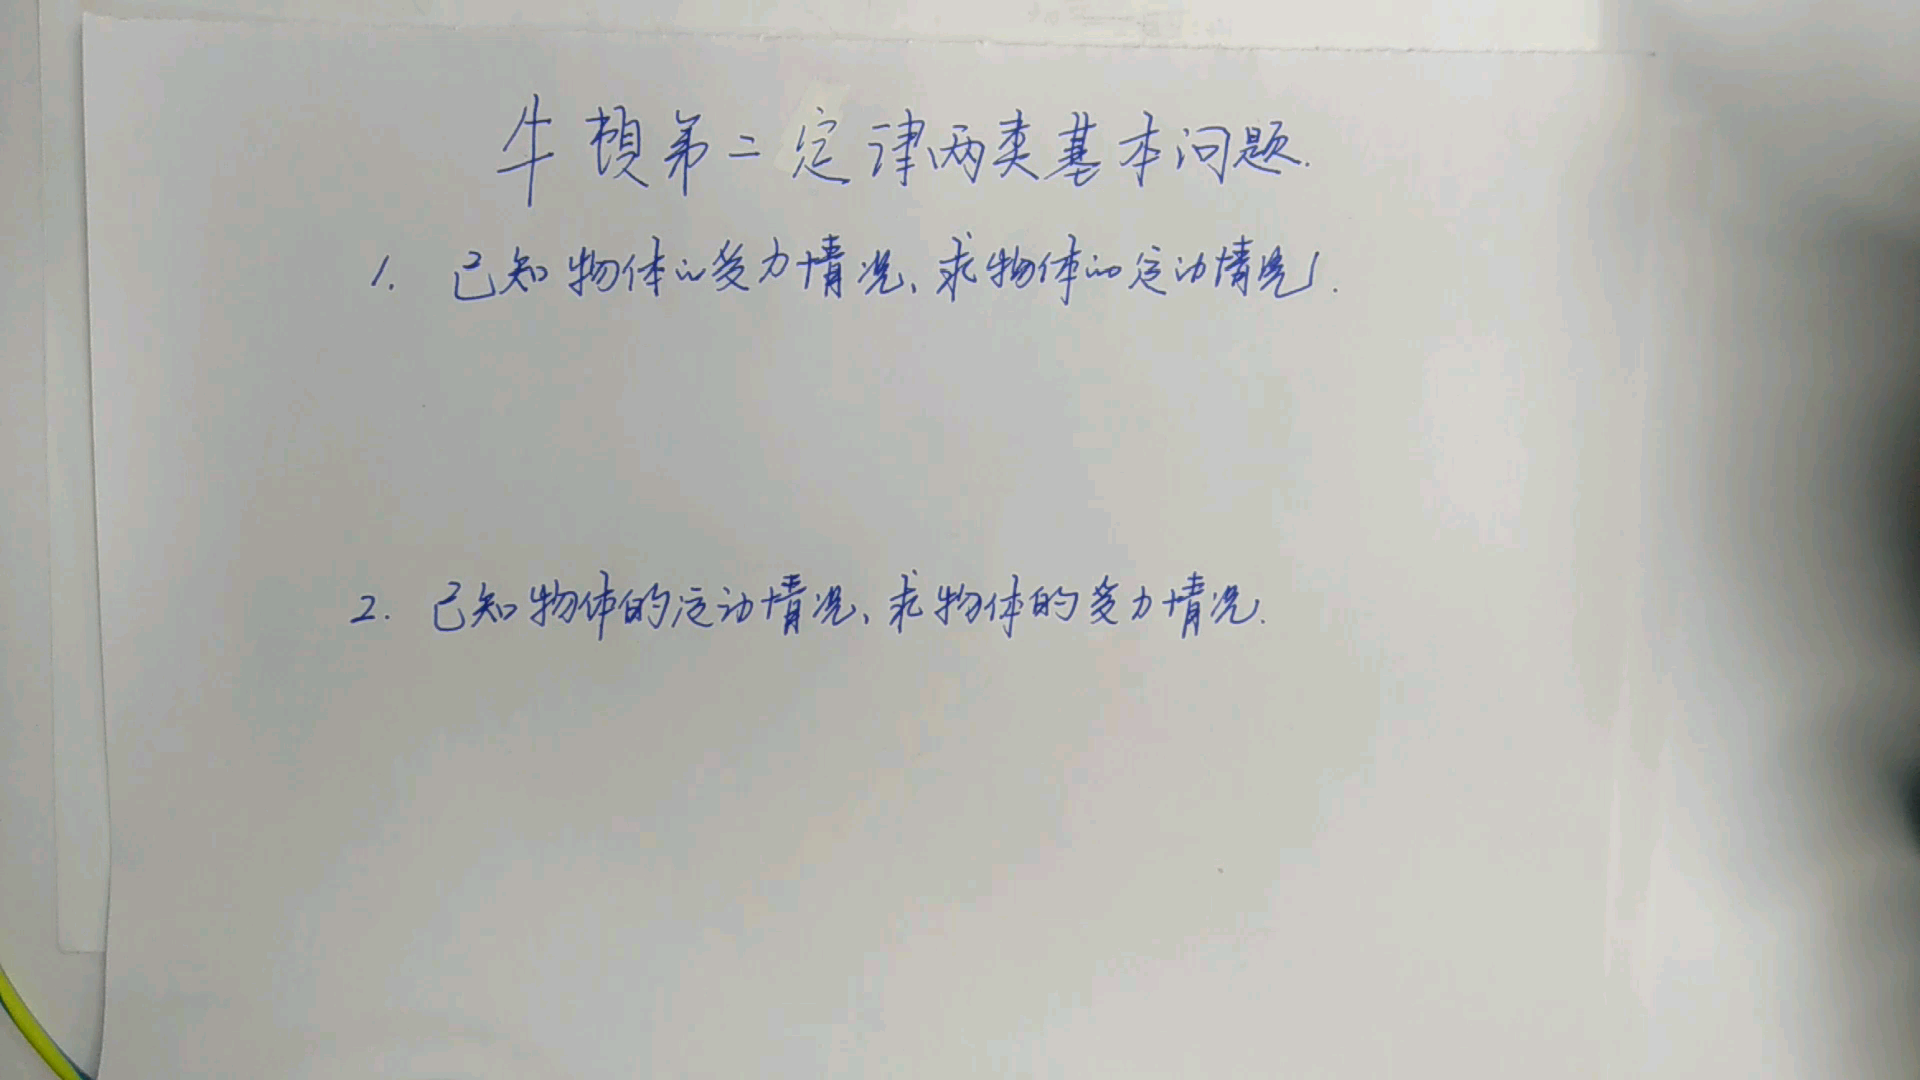 牛頓第二定律两类基本问题.
1. 已知物体的受力情况、求物体的运动情况.
2. 已知物体的运动情况、求物体的受力情况.